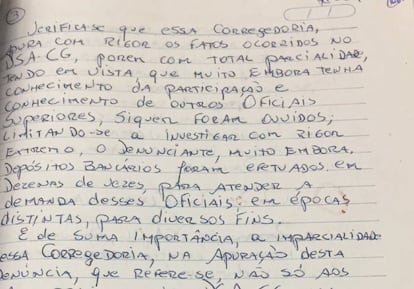 3
Verifica-se que essa Corregedoria,
apura com rigor os fatos ocorridos no
DSA-CG, porem com total parcialidade,
tendo em vista, que muito embora tenha
conhecimento da participação e
conhecimento de outros Oficiais
Superiores, siquer foram ouvidos;
limitando-se a investigar com rigor
extremo, o denunciante, muito embora.
Depósitos bancários foram efetuados em
dezenas de vezes, para atender a
demanda desses Oficiais; em épocas
distintas, para diversos fins.
É de suma importância, a imparcialidade
essa Corregedoria, na apuração desta
denúncia, que refere-se, não só aos